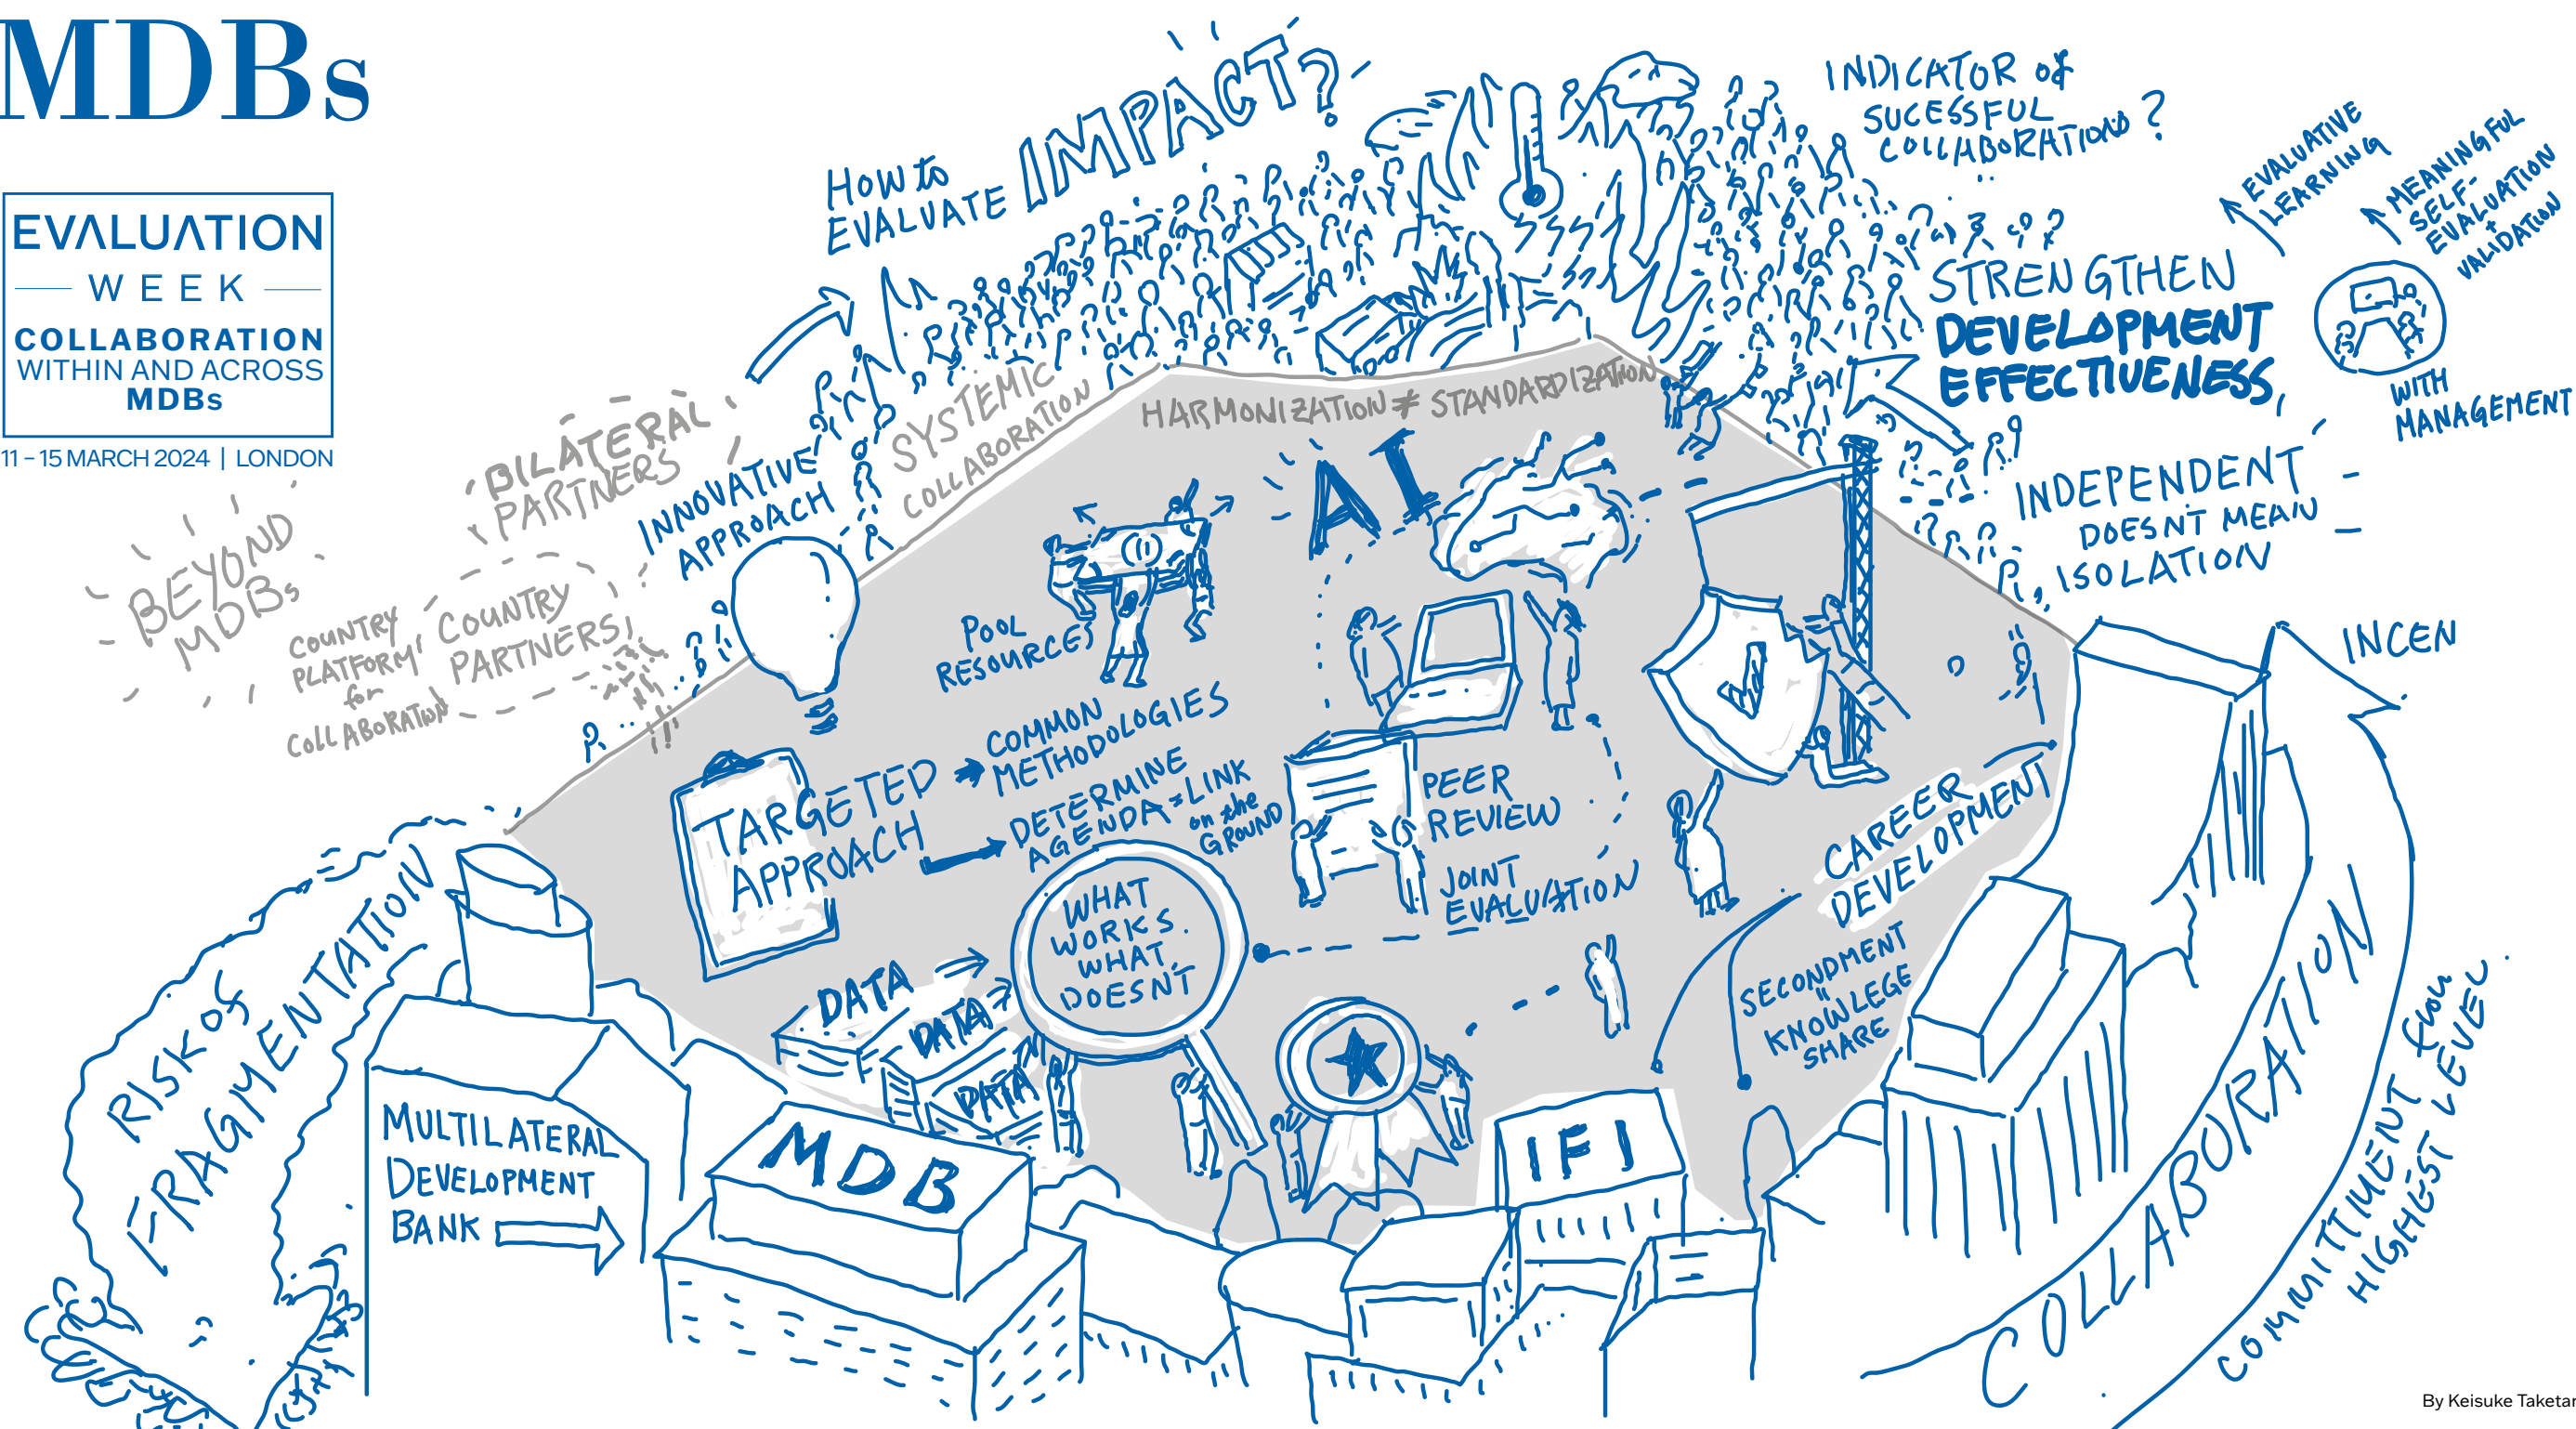 MDBs
EVALUATION
WEEK
COLLABORATION
WITHIN AND ACROSS
MDBs
11 – 15 MARCH 2024 | LONDON
HOW to
EVALUATE IMPACT?
INDICATOR of
SUCESSFUL
COLLABORATION?
EVALUATIVE
LEARNING
MEANINGFUL
SELF-
EVALUATION
+
VALIDATION
WITH
MANAGEMENT
STRENGTHEN
DEVELOPMENT
EFFECTIVENESS
INDEPENDENT
DOESNT MEAN
ISOLATION
BEYOND
MDBs
BILATERAL
PARTNERS
COUNTRY
PLATFORM
for
COLLABORATION
COUNTRY
PARTNERS
INNOVATIVE
APPROACH
SYSTEMIC
COLLABORATION
HARMONIZATION ≠ STANDARDIZATION
AI
POOL
RESOURCES
TARGETED
APPROACH
COMMON
METHODOLOGIES
DETERMINE
AGENDA = LINK
on the
GROUND
PEER
REVIEW
JOINT
EVALUATION
WHAT
WORKS.
WHAT
DOESN'T
DATA
DATA
DATA
CAREER
DEVELOPMENT
SECONDMENT
"
KNOWLEGE
SHARE
INCEN
RISK OF
FRAGMENTATION
MULTILATERAL
DEVELOPMENT
BANK
MDB
IFI
COLLABORATION
COMMITMENT from
HIGHEST LEVEL
By Keisuke